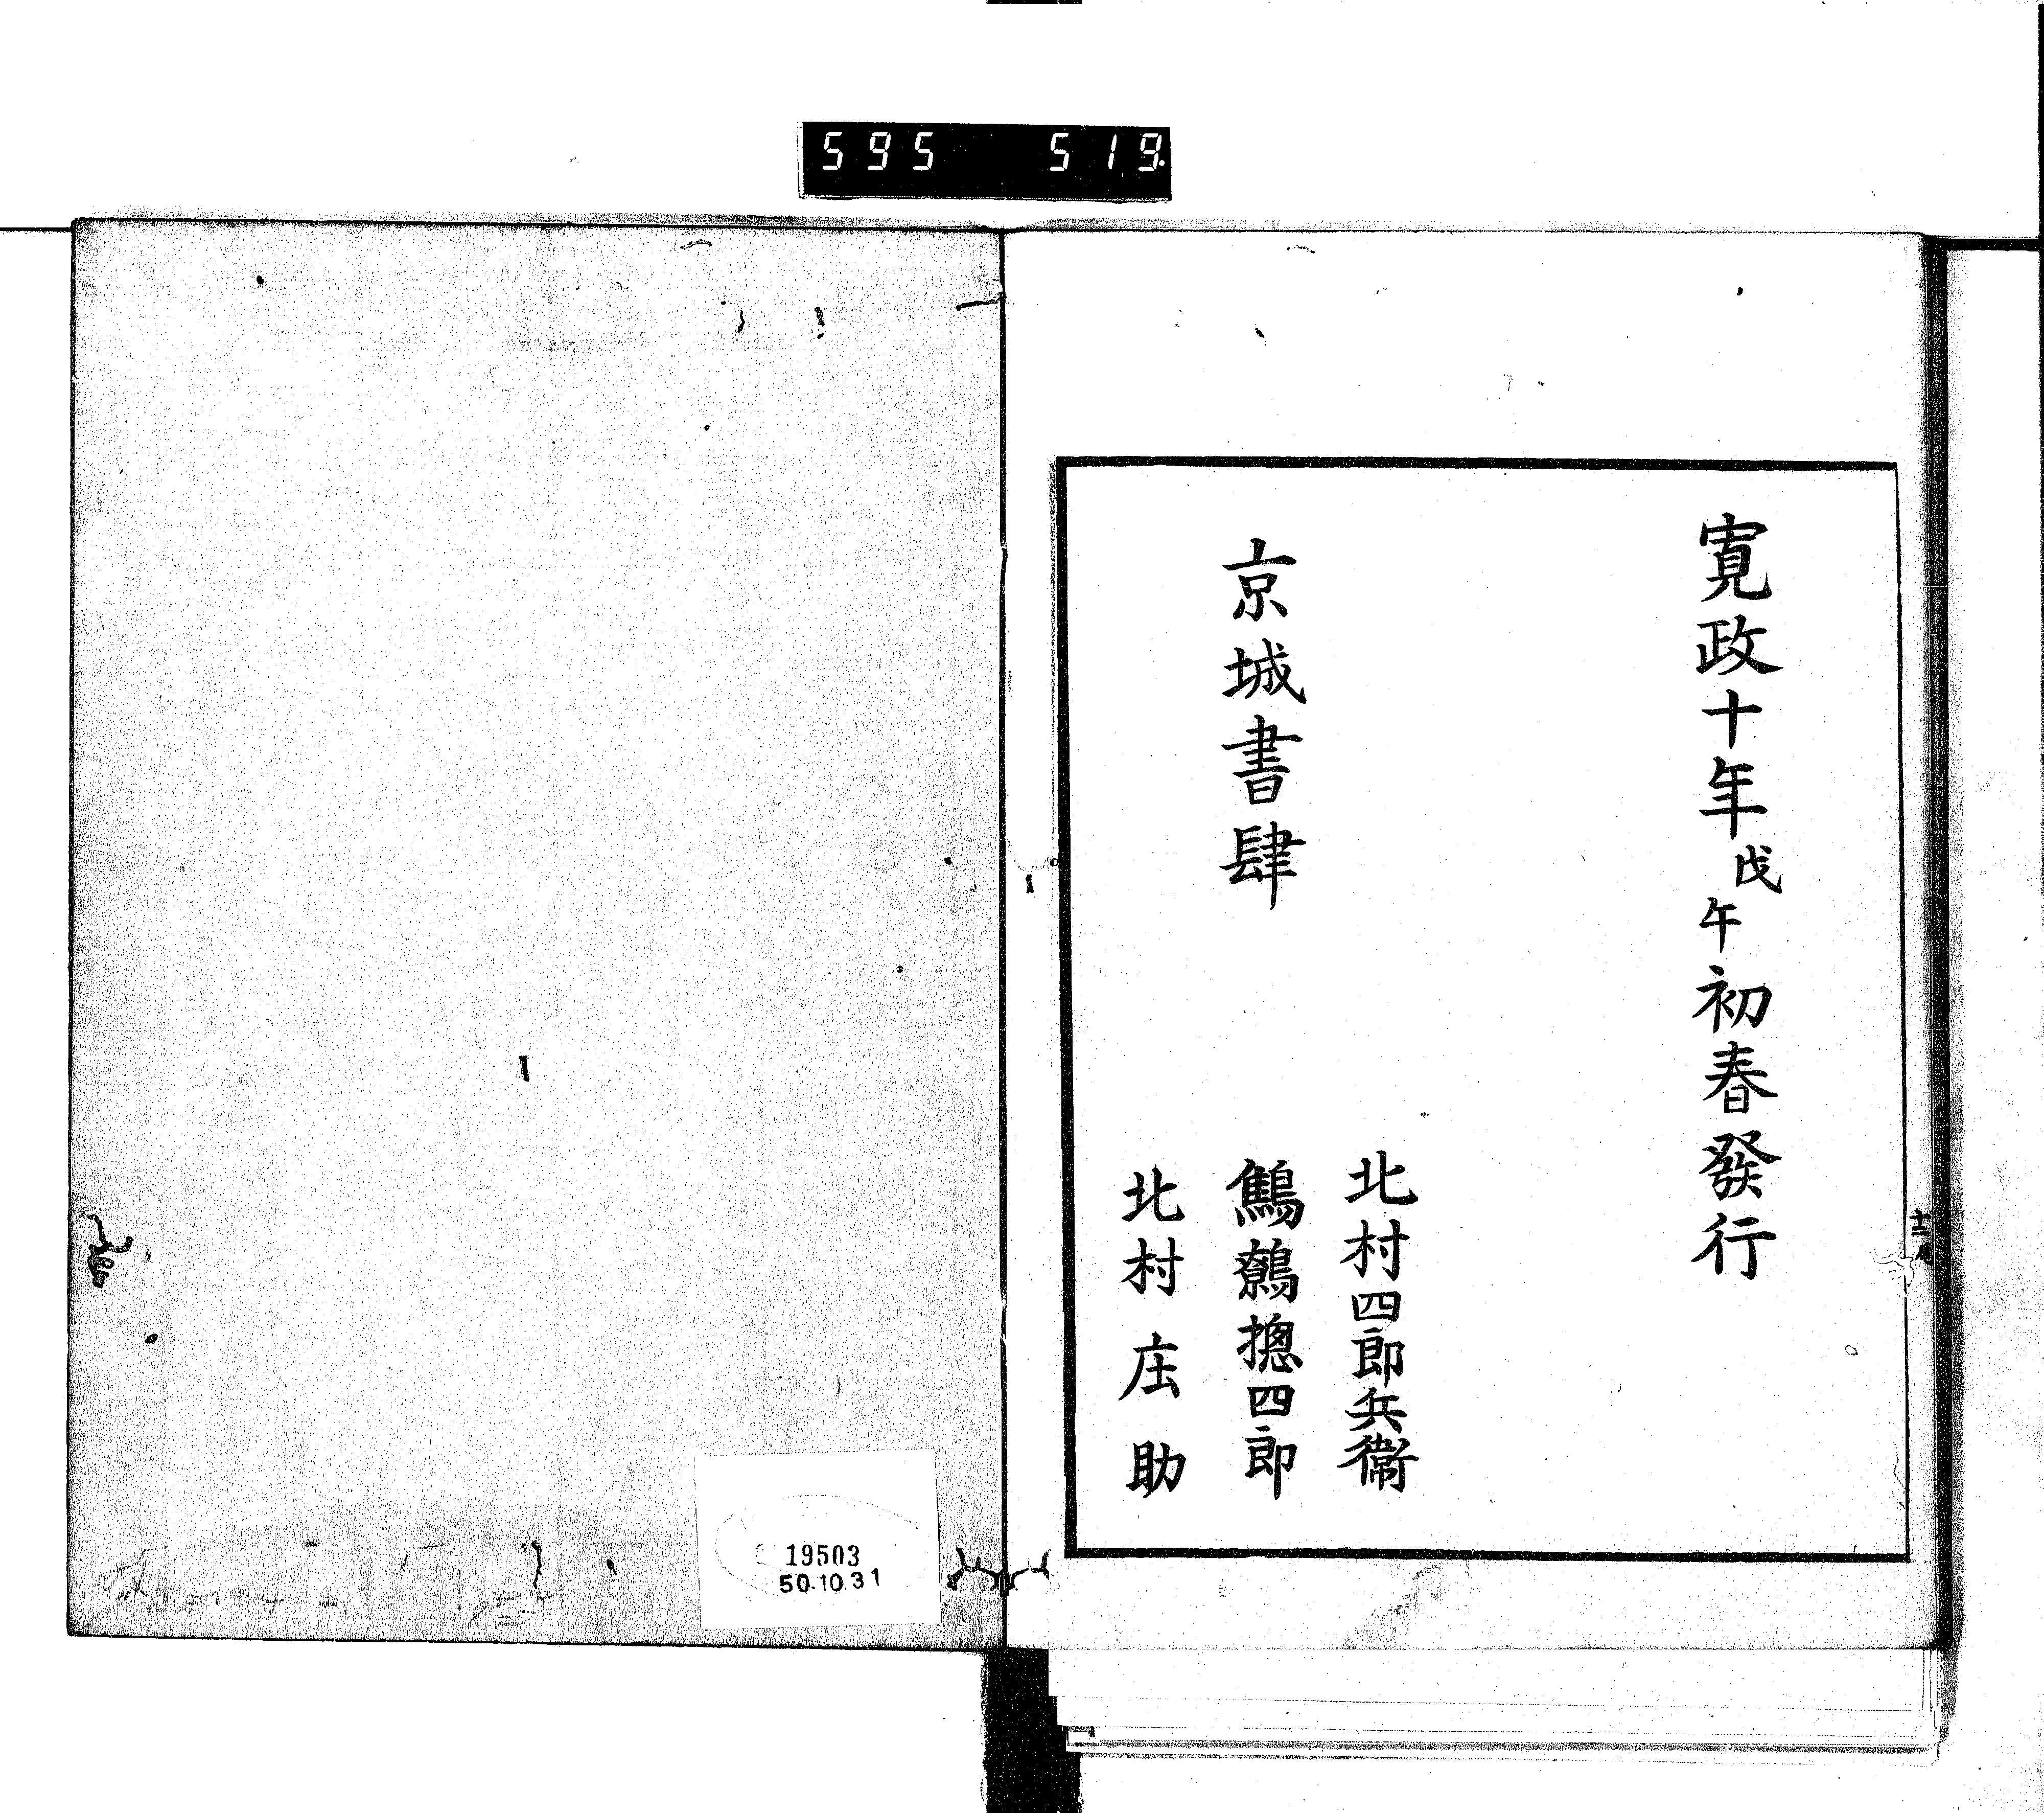 595 519
寛政十年戊午初春發行
京城書肆
北村四郎兵衞
鷦鷯摠四郎
北村庄助
19503
50.10.31